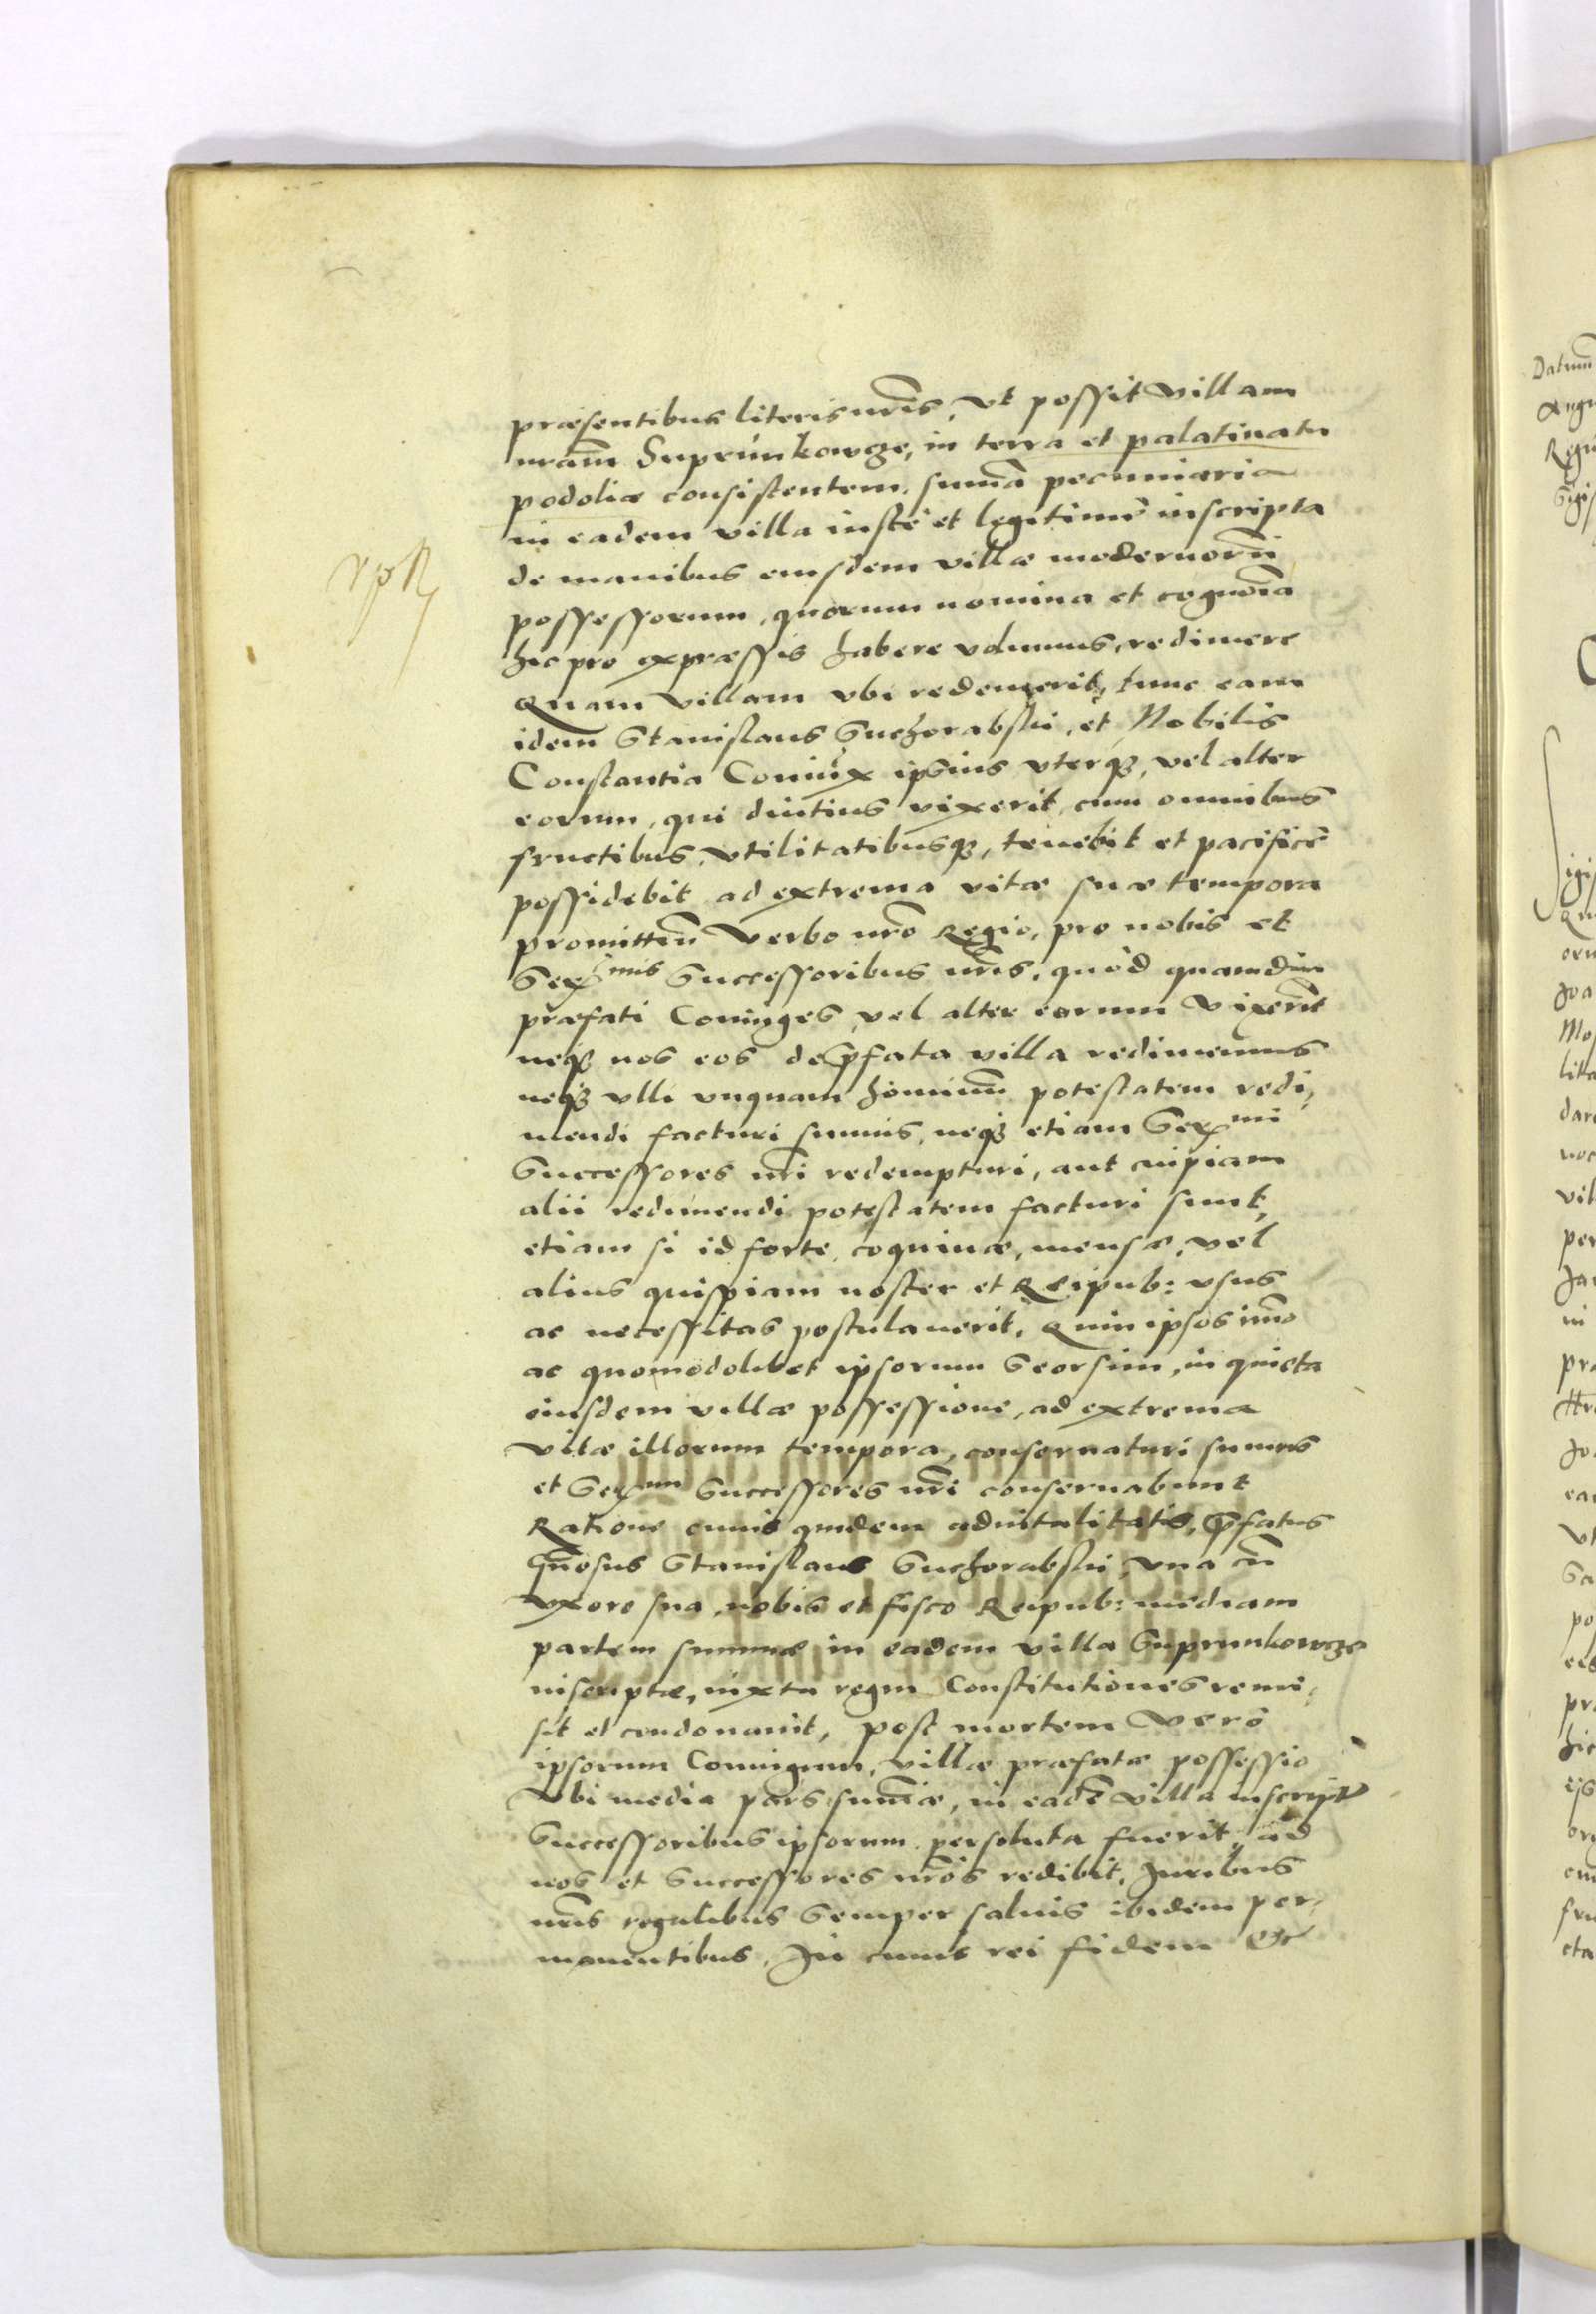 præsentibus literis nr̃is, Vt possit Villam
nram̃ Suprunkowcze, in terra et palatinatu
podoliæ consistentem, sum̃a pecuniaria
in eadem villa iustè et legitimè inscripta
de manibus eiusdem villæ modernorũ
possessorum, quorum nomina et cognoĩa
hic pro expræssis habere volumus, redimere
Quam Villam vbi redemerit, tunc eam
idem Stanislaus Suchorabski, et Nobilis
Constantia Coniux ipsius vterq₃, vel alter
eorum, qui diutius vixerit, cum omnibus
fructibus, vtilitatibusq₃, tenebit et pacificè
possidebit ad extrema vitæ suæ tempora
promitteñ Verbo nrõ Regio, pro nobis et
Ser^mis Successoribus nr̃is, quòd quamdiu
præfati Coniuges vel alter eorum Vixerit
neq₃ nos eos de p̃fata villa redimemus
neq₃ vlli vnquam hominum̃ potestatem redi,
mendi facturi sumus, neq₃ etiam Ser^mi
Successores nri redempturi, aut cuipiam
alii redimendi potestatem facturi sunt,
etiam si id forte, coquinæ, mensæ, vel
alius quispiam noster et Reipub: vsus
ac necessitas postulauerit, Quin ipsos im̃o
ac quomodolibet ipsorum Seorsim, in quieta
eiusdem villæ possessione, ad extrema
vitæ illorum tempora, conseruaturi sumus
et Ser^mi Successores nri conseruabunt
Ratione cuius quidem aduitalitatis, p̃fatus
Gñosus Stanislaus Suchorabski, vna cũ
vxore sua, nobis et fisco Reipub: mediam
partem summæ in eadem villa Suprunkowcze
inscriptæ, iuxta regni Constitutiones remi,
sit et condonauit, post mortem Verò
ipsorum Coniugum, villæ præfatæ possessio
Vbi media pars sum̃æ, in eadẽ Villa inscriptæ
Successoribus ipsorum persoluta fuerit, ad
nos et Successores nrõs redibit, Iuribus
nr̃is regalibus Semper saluis ibidem per,
manentibus. In cuius rei fidem &c